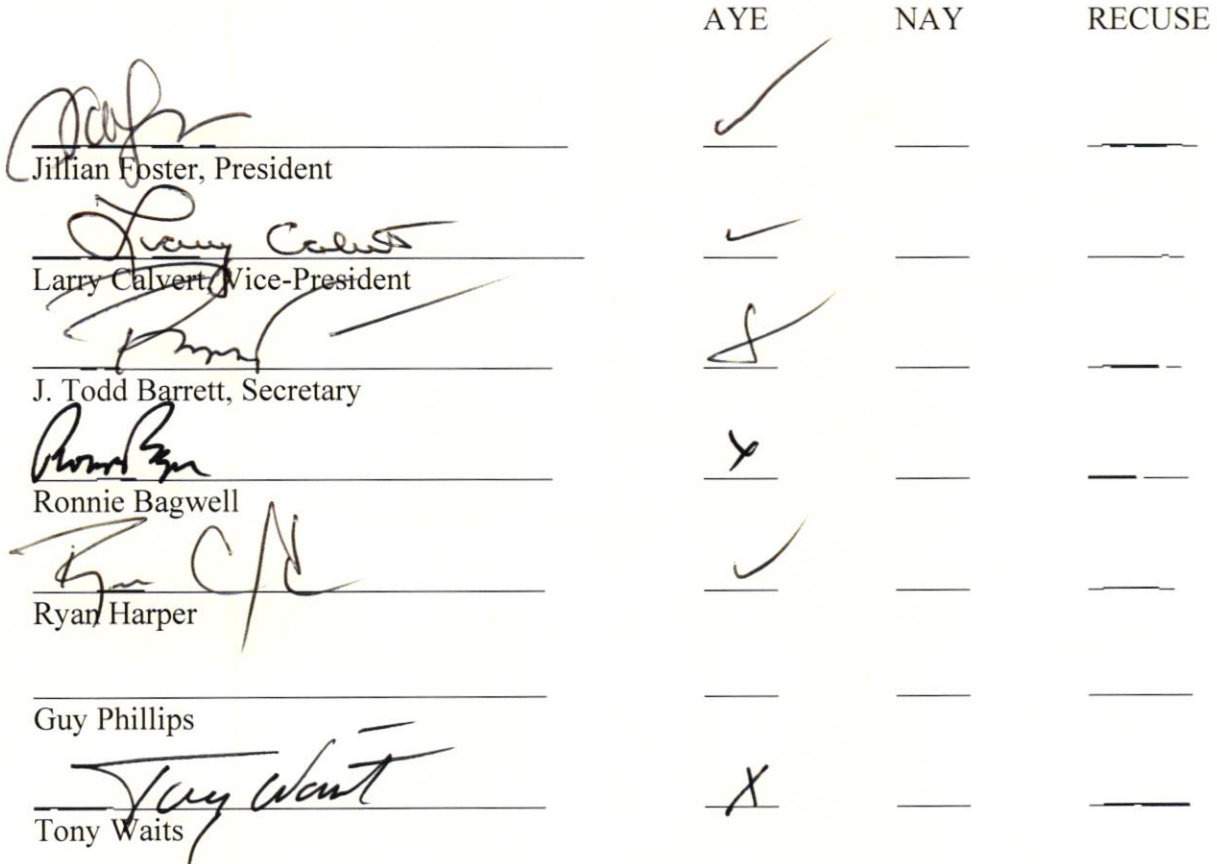 AYE NAY RECUSE
✓
Jillian Foster, President
Larry Calvert ✓
Larry Calvert, Vice-President
J. Todd Barrett, Secretary
X
Ronnie Bagwell
✓
Ryan Harper
Guy Phillips
Tony Waits X
Tony Waits